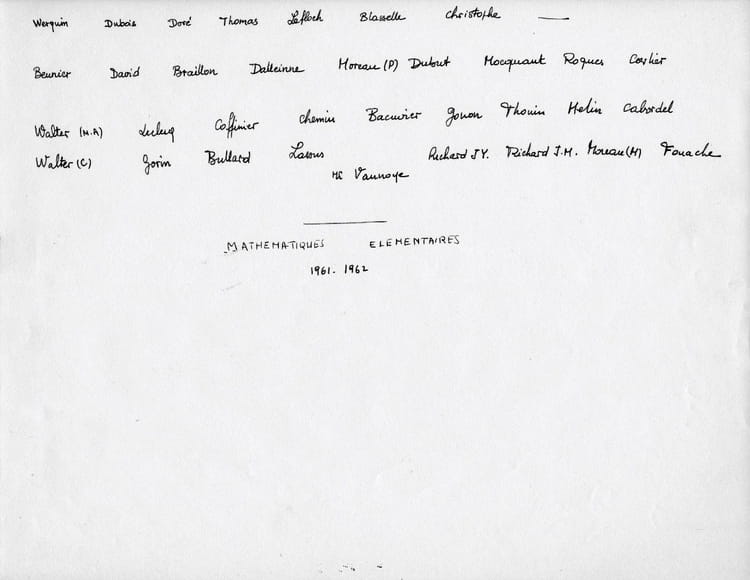 Werquin Dubois Doré Thomas Lefloch Blasselle Christophe —
Beunier David Braillon Dalleinne Moreau (P) Dubout Mocquant Roques Coylier
Walter (M.A) Leclerq Coffinier Chemin Bacuvier Gonon Thouin Helin Cabordel
Walter (C) Gorin Bullard Lasous Richard J.Y. Richard J.M. Moreau (M) Fouache
Mr Vannoye
MATHEMATIQUES ELEMENTAIRES
1961. 1962